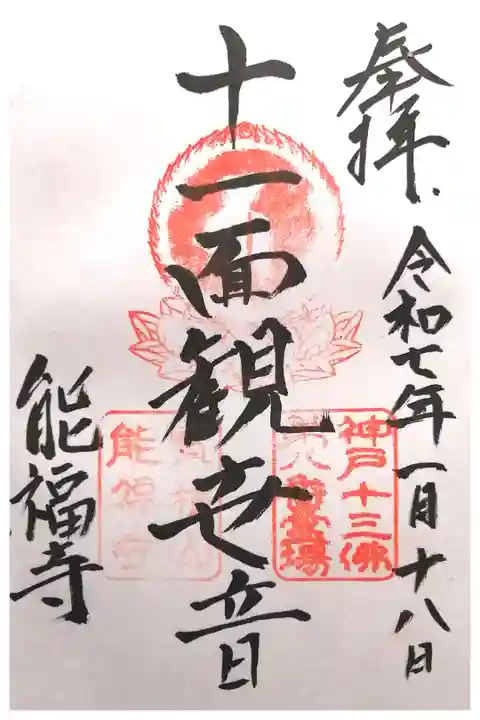 奉拝
令和七年一月十八日
十一面観世音
能福寺
神戸十三佛
第八番霊場
能福寺